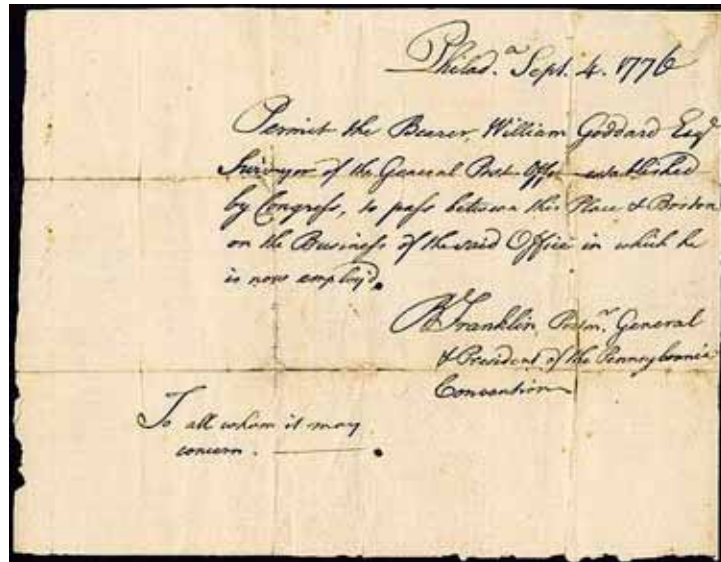 Philad.ª Sept. 4. 1776
Permit the Bearer, William Goddard Esqʳ
Surveyor of the General Post-Office established
by Congress, to pass between this Place & Boston
on the Business of the said Office in which he
is now employ'd.
B Franklin, Postmʳ. General
& President of the Pennsylvania
Convention
To all whom it may
concern.